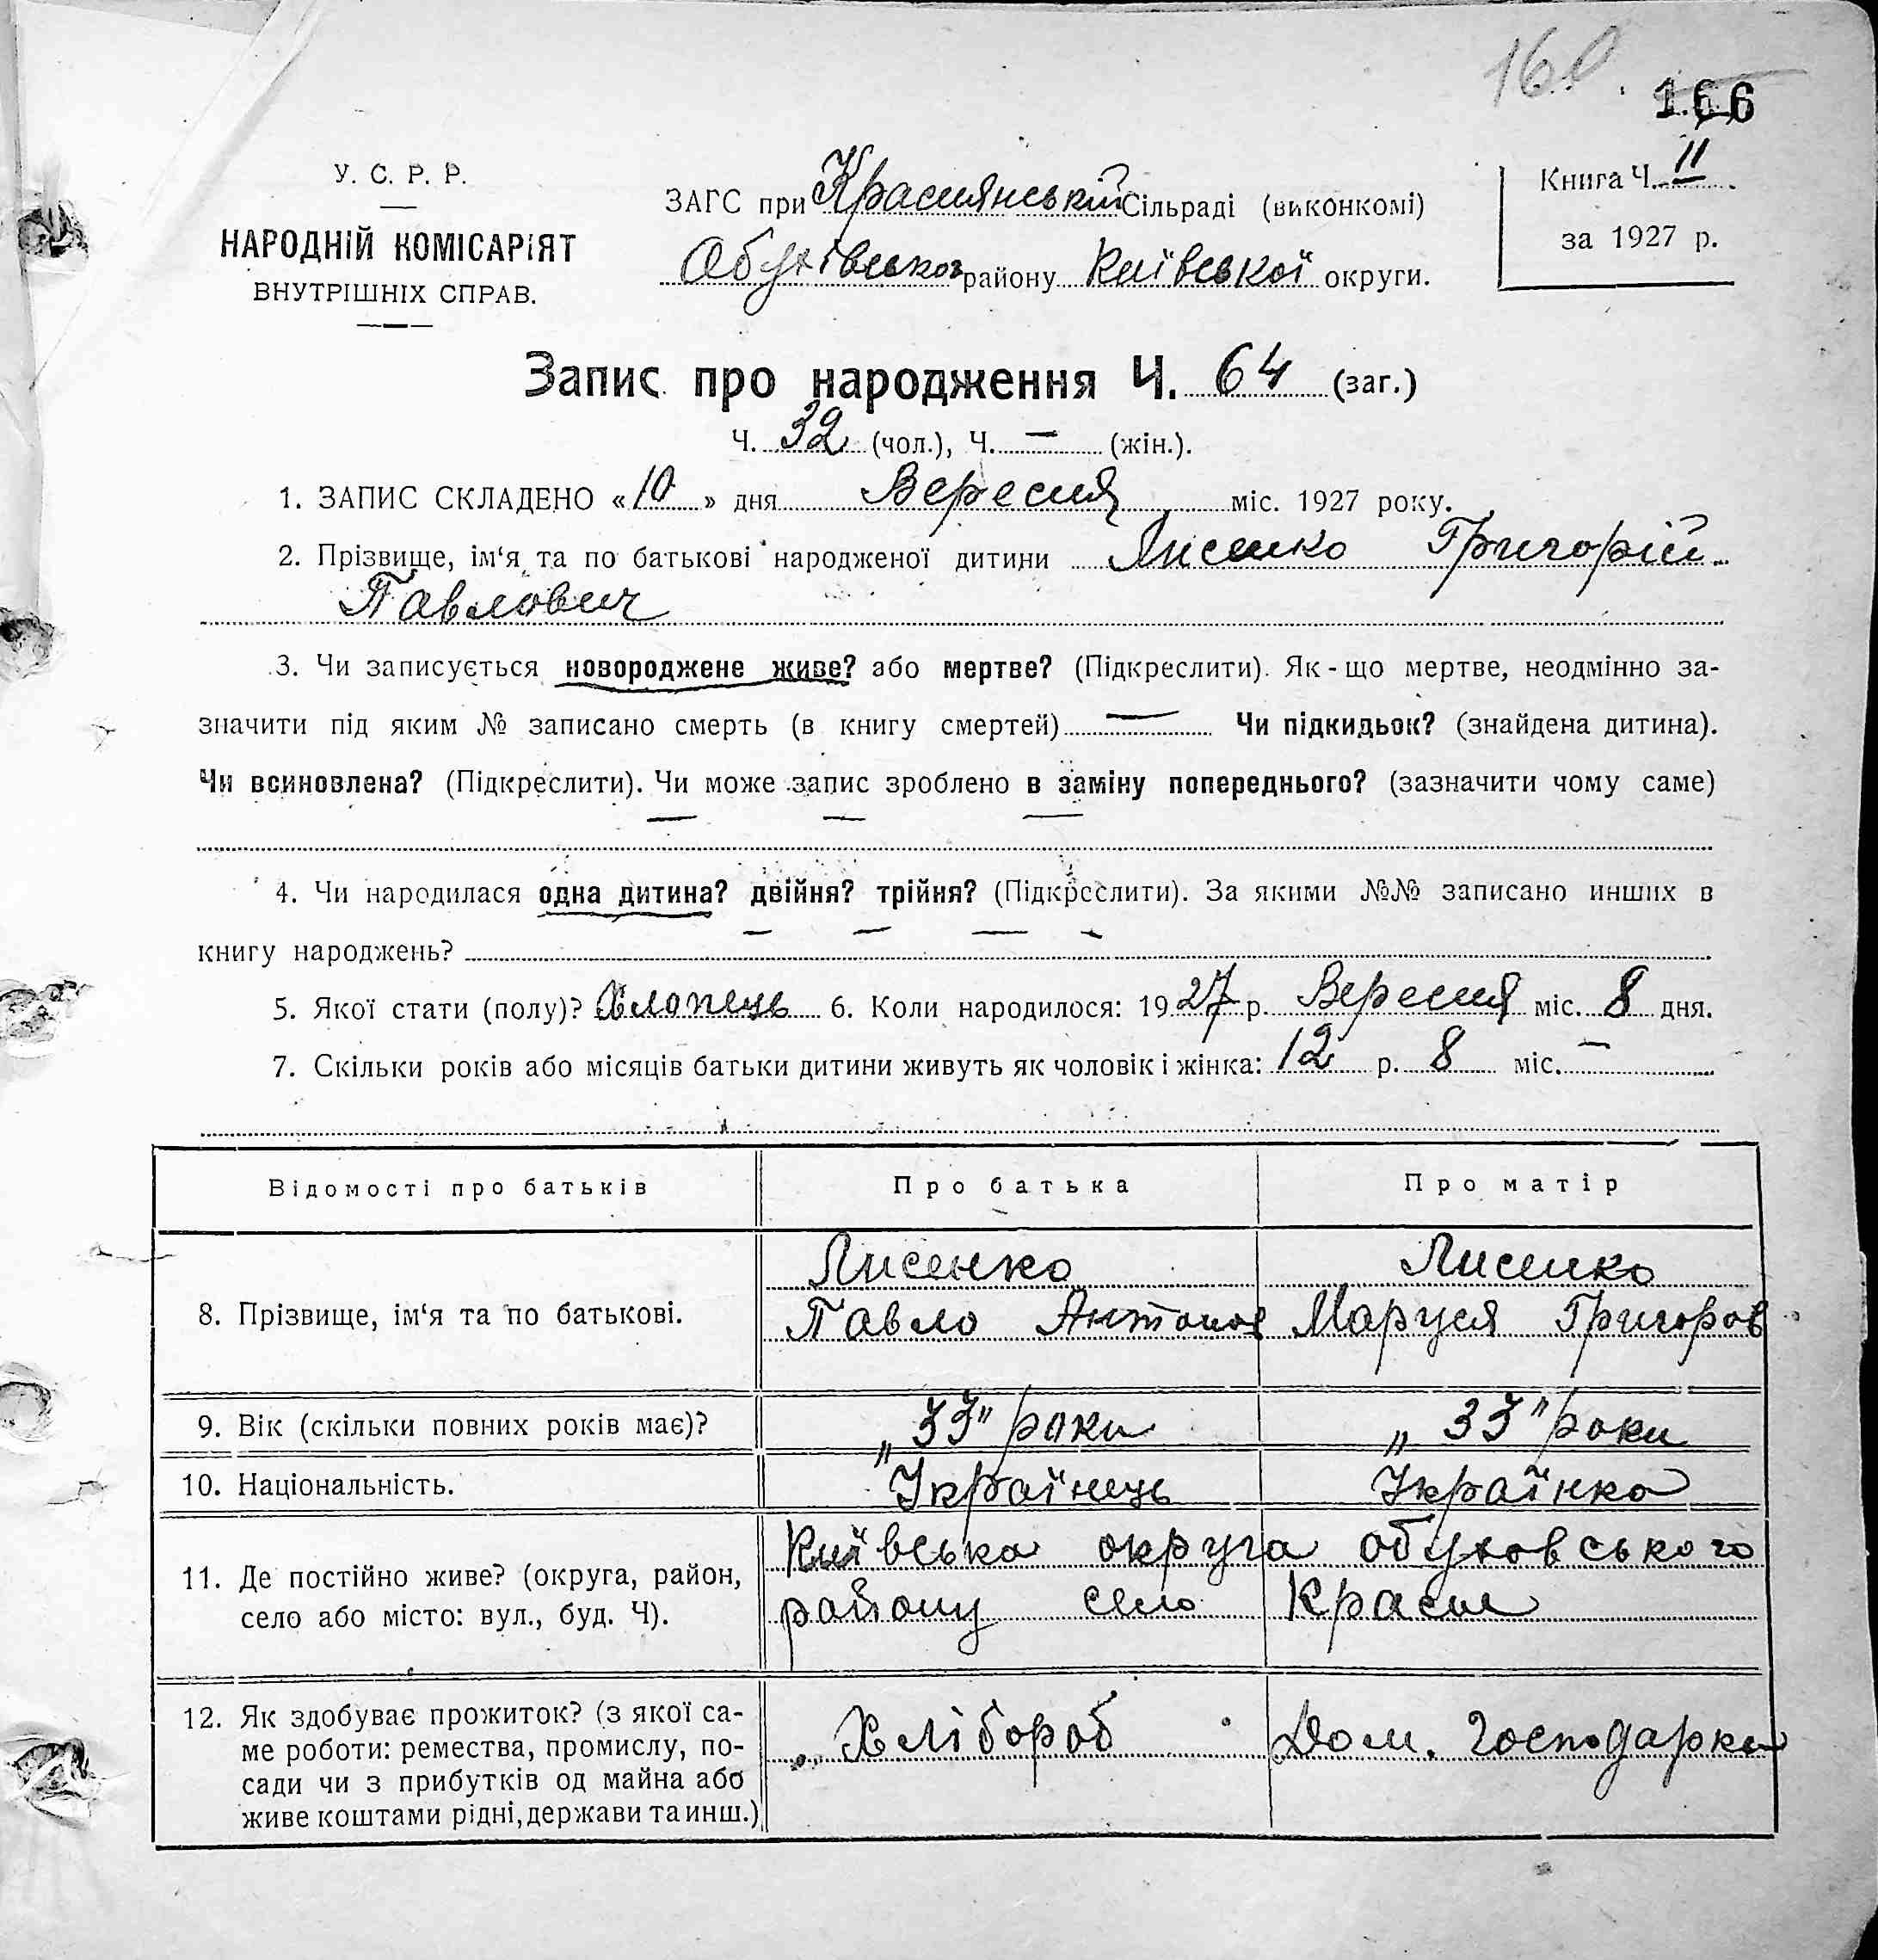 160
166
У. С. Р. Р.
НАРОДНІЙ КОМІСАРІЯТ
ВНУТРІШНІХ СПРАВ.
ЗАГС при Краснянській Сільраді (виконкомі)
Обухівського району Київської округи.
Книга Ч. II
за 1927 р.
Запис про народження Ч. 64 (заг.)
Ч. 32 (чол.), Ч. — (жін.).
1. ЗАПИС СКЛАДЕНО «10» дня Вересня міс. 1927 року.
2. Прізвище, ім‘я та по батькові народженої дитини Лисенко Григорій
Павлович
3. Чи записується новороджене живе? або мертве? (Підкреслити). Як-що мертве, неодмінно за-
значити під яким № записано смерть (в книгу смертей) — Чи підкидьок? (знайдена дитина).
Чи всиновлена? (Підкреслити). Чи може запис зроблено в заміну попереднього? (зазначити чому саме)
4. Чи народилася одна дитина? двійня? трійня? (Підкреслити). За якими №№ записано инших в
книгу народжень?
5. Якої стати (полу)? Хлопець 6. Коли народилося: 1927 р. Вересня міс. 8 дня.
7. Скільки років або місяців батьки дитини живуть як чоловік і жінка: 12 р. 8 міс. —
Відомості про батьків Про батька Про матір
Лисенко Лисенко
8. Прізвище, ім‘я та по батькові. Павло Антонов Маруся Григоров
9. Вік (скільки повних років має)? „33" роки „33" роки
10. Національність. Українець Українка
Київська округа обуховського
11. Де постійно живе? (округа, район,
село або місто: вул., буд. Ч). району село Красне
12. Як здобуває прожиток? (з якої са-
ме роботи: ремества, промислу, по- Хлібороб Дом. господарка
сади чи з прибутків од майна або
живе коштами рідні, держави та инш.)